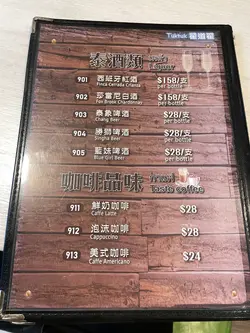 酒類
901 西班牙紅酒 $158/支
Finca Cerrada Crianza per bottle
902 莎當尼白酒 $158/支
Fox Brook Chardonnay per bottle
903 泰象啤酒 $28/支
Chang Beer per bottle
904 勝獅啤酒 $28/支
Singha Beer per bottle
905 藍妹啤酒 $28/支
Blue Girl Beer per bottle
咖啡品味
Taste coffee
911 鮮奶咖啡 $28
Caffe Latte
912 泡沫咖啡 $28
Cappuccino
913 美式咖啡 $24
Caffe Americano